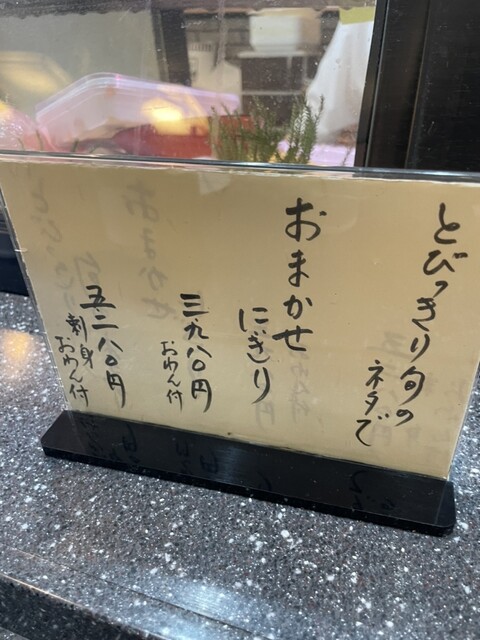 とびっきり旬の
ネタで
おまかせ
にぎり
三九八〇円
おわん付
五二八〇円
刺身
おわん付